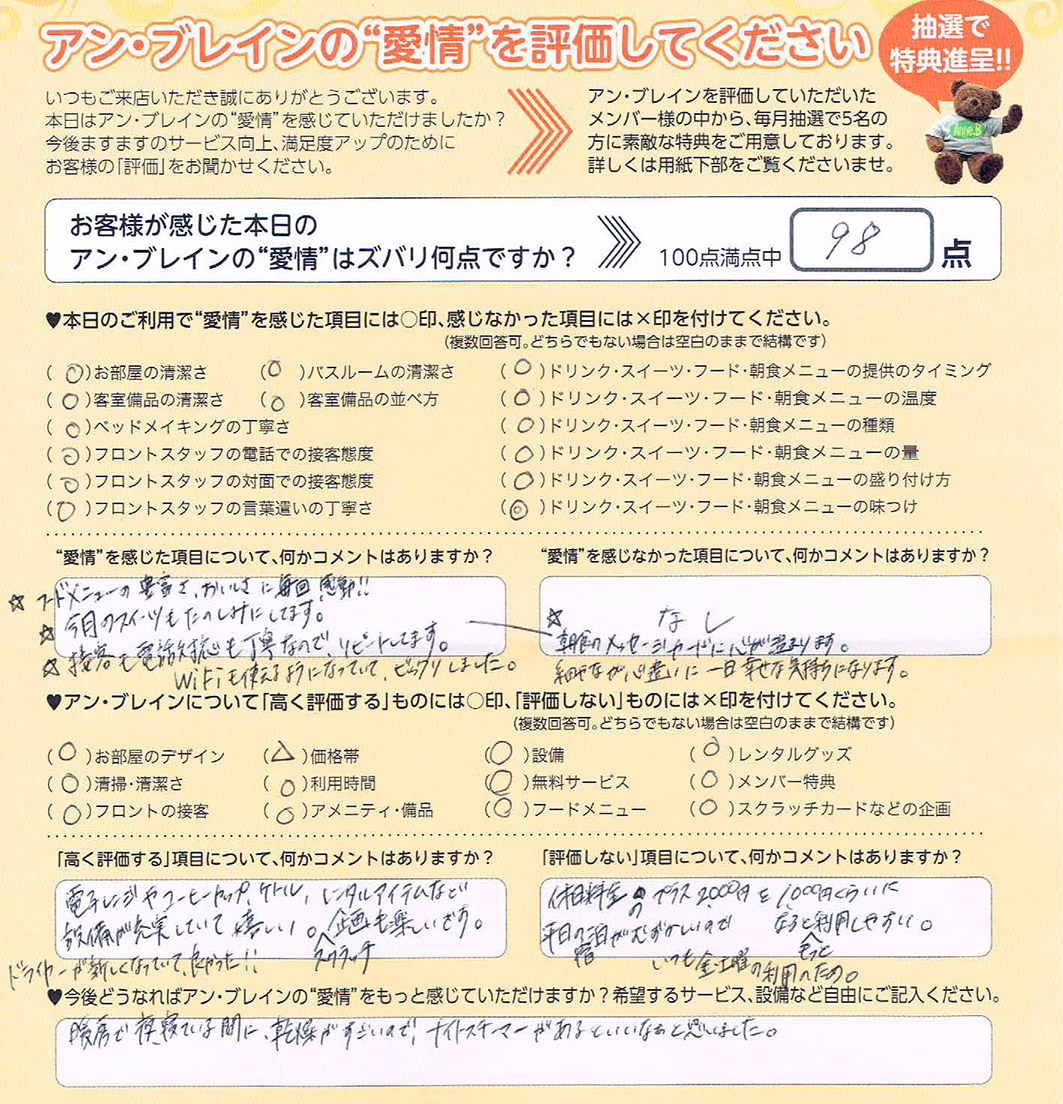 アン・ブレインの“愛情”を評価してください
抽選で
特典進呈!!
いつもご来店いただき誠にありがとうございます。
本日はアン・ブレインの“愛情”を感じていただけましたか？
今後ますますのサービス向上、満足度アップのために
お客様の「評価」をお聞かせください。
アン・ブレインを評価していただいた
メンバー様の中から、毎月抽選で5名の
方に素敵な特典をご用意しております。
詳しくは用紙下部をご覧くださいませ。
Anne.B
お客様が感じた本日の
アン・ブレインの“愛情”はズバリ何点ですか？
100点満点中 98 点
♥本日のご利用で“愛情”を感じた項目には○印、感じなかった項目には×印を付けてください。
（複数回答可。どちらでもない場合は空白のままで結構です）
(○)お部屋の清潔さ (○)バスルームの清潔さ (○)ドリンク・スイーツ・フード・朝食メニューの提供のタイミング
(○)客室備品の清潔さ (○)客室備品の並べ方 (○)ドリンク・スイーツ・フード・朝食メニューの温度
(○)ベッドメイキングの丁寧さ (○)ドリンク・スイーツ・フード・朝食メニューの種類
(○)フロントスタッフの電話での接客態度 (○)ドリンク・スイーツ・フード・朝食メニューの量
(○)フロントスタッフの対面での接客態度 (○)ドリンク・スイーツ・フード・朝食メニューの盛り付け方
(○)フロントスタッフの言葉遣いの丁寧さ (◎)ドリンク・スイーツ・フード・朝食メニューの味つけ
“愛情”を感じた項目について、何かコメントはありますか？
☆フードメニューの豊富さ、おいしさに毎回感動!!
☆今月のスイーツもたのしみにしてます。
☆接客も電話対応も丁寧なので、リピートしてます。
WiFiも使えるようになっていて、ビックリしました。
“愛情”を感じなかった項目について、何かコメントはありますか？
なし
☆朝食のメッセージカードに心が温まります。
細やかな心遣いに一日幸せな気持ちになります。
♥アン・ブレインについて「高く評価する」ものには○印、「評価しない」ものには×印を付けてください。
（複数回答可。どちらでもない場合は空白のままで結構です）
(○)お部屋のデザイン (△)価格帯 (○)設備 (○)レンタルグッズ
(○)清掃・清潔さ (○)利用時間 (○)無料サービス (○)メンバー特典
(○)フロントの接客 (○)アメニティ・備品 (○)フードメニュー (○)スクラッチカードなどの企画
「高く評価する」項目について、何かコメントはありますか？
電子レンジやコーヒーカップ、ケトル、レンタルアイテムなど
設備が充実していて嬉しい！。企画も楽しいです。
スクラッチ
ドライヤーが新しくなっていて、良かった!!
「評価しない」項目について、何かコメントはありますか？
休日料金のプラス2,000円を1,000円くらいに
平日の宿泊がむずかしいので なるともっと利用しやすい。
いつも金土曜の利用のため。
♥今後どうなればアン・ブレインの“愛情”をもっと感じていただけますか？希望するサービス、設備など自由にご記入ください。
暖房で夜寝ている間に、乾燥がすごいので、ナイトスチーマーがあるといいなぁと思いました。